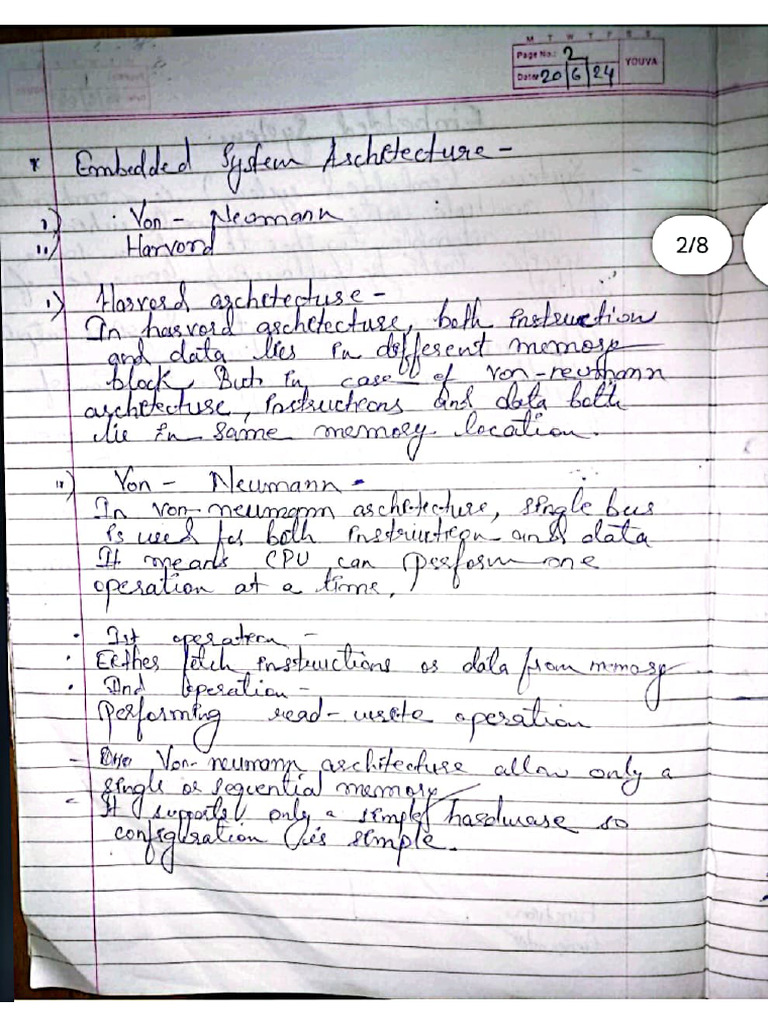 M T W T F S S
Page No.: 2
YOUVA
Date: 20 6 24
* Embedded System Architecture -
i) Von - Neumann
ii) Harvard
2/8
i) Harvard architecture -
In harvard architecture, both instruction
and data lies in different memory
block. But in case of von-neumann
architecture, instructions and data both
lie in same memory location.
ii) Von - Neumann -
In von-neumann architecture, single bus
is used for both instruction and data
It means CPU can perform one
operation at a time.
• Ist operation -
• Either fetch instructions or data from memory
• IInd operation -
Performing read-write operation
- Von-neumann architecture allow only a
single or sequential memory
- It supports only a simple hardware so
configuration is simple.